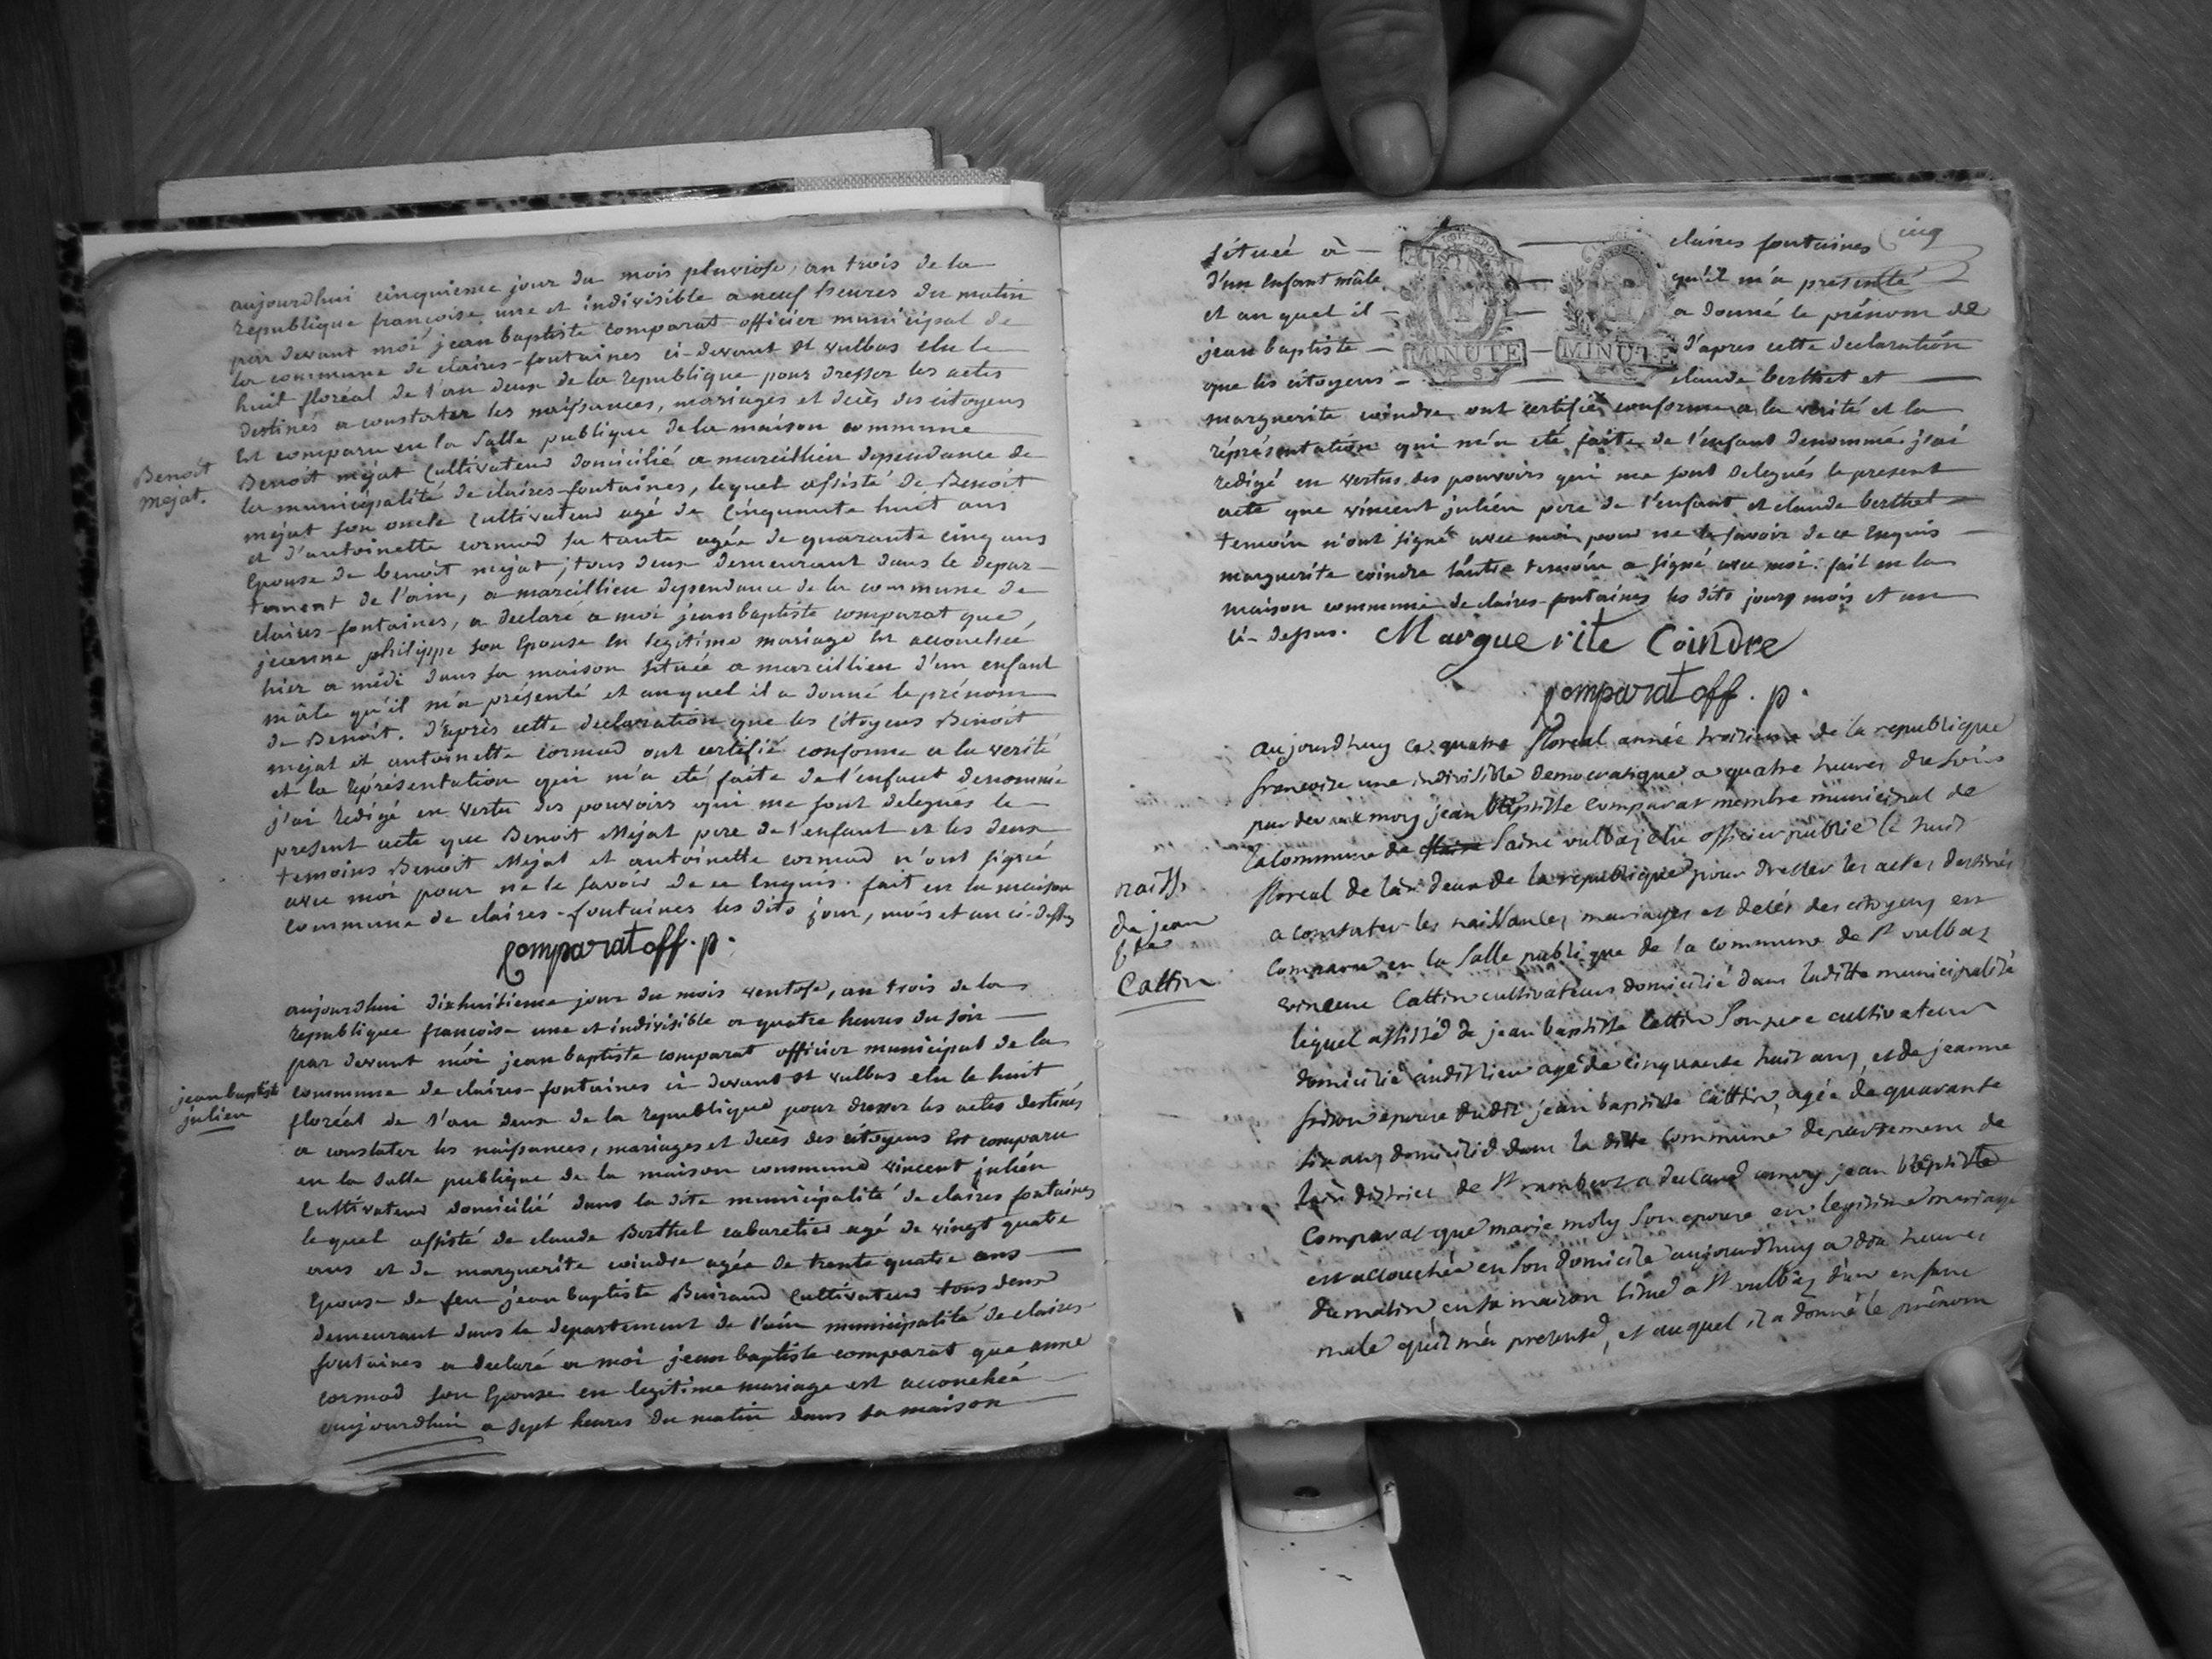 aujourdhui cinquieme jour du mois pluviose, an trois de la
republique françoise une et indivisible a neuf heures du matin
par devant moi jean baptiste comparat officier municipal de
la commune de claires-fontaines ci-devant st vulbas elu le
huit floréal de l'an deux de la republique pour dresser les actes
destinés a constater les naissances, mariages et decès des citoyens
Est comparu en la salle publique de la maison commune
Benoit mejat cultivateur domicilié a marcillieu dependance de
la municipalité de claires-fontaines, lequel assisté de Benoit
mejat son oncle cultivateur agé de cinquante huit ans
et d'antoinette cormad sa tante agée de quarante cinq ans
Epouse de benoit mejat, tous deux demeurant dans le depar-
tement de l'ain, a marcillieu dependance de la commune de
claires-fontaines, a declaré a moi jean baptiste comparat que
jeanne philippe son Epouse en legitime mariage est accouchée
hier a midi dans sa maison située a marcillieu d'un enfant
mâle qu'il m'a présenté et auquel il a donné le prénom
de Benoit. d'après cette declaration que les citoyens Benoit
mejat et antoinette cormad ont certifié conforme a la verité
et la réprésentation qui m'a eté faite de l'enfant denommé
j'ai redigé en vertu des pouvoirs qui me sont delegués le
present acte que Benoit Mejat pere de l'enfant et les deux
temoins Benoit Mejat et antoinette cormad n'ont signé
avec moi pour ne le savoir de ce Enquis. fait en la maison
commune de claires-fontaines les dits jour, mois et an ci-dessus
Benoit
Mejat.
comparat off. p.
aujourdhui dixhuitieme jour du mois ventose, an trois de la
republique françoise une et indivisible a quatre heures du soir
par devant moi jean baptiste comparat officier municipal de la
commune de claires-fontaines ci-devant st vulbas elu le huit
floréal de l'an deux de la republique pour dresser les actes destinés
a constater les naissances, mariages et decès des citoyens Est comparu
en la salle publique de la maison commune vincent julién
cultivateur domicilié dans la dite municipalité de claires fontaines
lequel assisté de claude Berthet cabaretier agé de vingt quatre
ans et de marguerite coindre agée de trente quatre ans
Epouse de feu jean baptiste Buiraud cultivateur tous deux
demeurant dans le departement de l'ain municipalité de claires-
fontaines a declaré a moi jean baptiste comparat que anne
cormad son Epouse en legitime mariage est accouchée
aujourdhui a sept heures du matin dans sa maison
jean baptiste
julien
cinq
située à claires fontaines
d'un Enfant mâle qu'il m'a presenté
et auquel il a donné le prénom de
jean baptiste d'apres cette declaration
que les citoyens claude berthet et
MINUTE
MINUTE
marguerite coindre ont certifié conforme a la verité et la
réprésentation qui m'a eté faite de l'enfant denommé j'ai
redigé en vertus des pouvoirs qui me sont delegués le present
acte que vincent julién pere de l'enfant et claude berthet
temoin n'ont signé avec moi pour ne le savoir de ce Enquis
marguerite coindre l'autre temoin a signé avec moi. fait en la
maison commune de claires-fontaines les dits jours mois et an
ci-dessus. Marguerite Coindre
comparat off. p.
aujourdhuy ce quatre floreal année troisieme de la republique
francoise une indivisible democratique a quatre heures du soir
par devant moy jean baptiste comparat membre municipal de
la commune de Saint vulbas elu officier public le huit
floreal de l'an deux de la republique pour dresser les actes destinés
a constater les naissances, mariages et decés des citoyens est
comparu en la salle publique de la commune de st vulbas
vincent Cattin cultivateur domicilié dans ladite municipalité
lequel assisté de jean baptiste Cattin son pere cultivateur
domicilié audit lieu agé de cinquante huit ans, et de jeanne
epouse dudit jean baptiste Cattin, agée de quarante
six ans domicilié dans la ditte commune departement de
lain district de st rambert a declaré a moy jean baptiste
Comparat que marie moly son epouse en legitime mariage
est accouchée en son domicile aujourdhuy a dix heures
du matin, en sa maison situé a st vulbas d'un enfant
male quil ma presenté, et auquel il a donné le prénom
naiss.
de jean
bte
Cattin